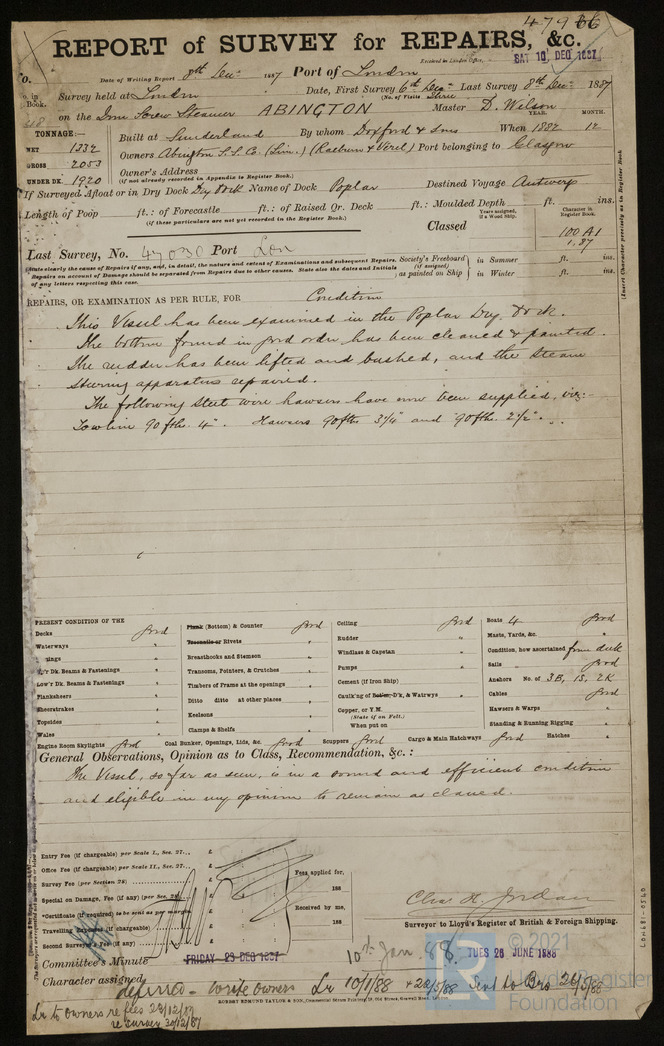 479 66
REPORT of SURVEY for REPAIRS, &c.
Received in London Office, SAT 10 DEC 1887
No. Date of Writing Report 8th Dec. 1887 Port of London
No. in Book. Survey held at London Date, First Survey 6th Dec. Last Survey 8th Dec. 1887
(No. of Visits Three
on the Iron Screw Steamer ABINGTON Master D. Wilson
TONNAGE:— YEAR. MONTH.
NET 1332 Built at Sunderland By whom Doxford & Sons When 1882 12
GROSS 2053 Owners Abington S.S. Co. (Lim.) (Raeburn & Verel) Port belonging to Glasgow
UNDER DK. 1920 Owner's Address
(if not already recorded in Appendix to Register Book.)
If Surveyed Afloat or in Dry Dock Dry Dock Name of Dock Poplar Destined Voyage Antwerp
Length of Poop ft.: of Forecastle ft.: of Raised Qr. Deck ft.: Moulded Depth ft. ins.
(if these particulars are not yet recorded in the Register Book.)
Years assigned, if a Wood Ship.
Character in Register Book.
Classed 100 A1
1.87
(Insert Character precisely as in Register Book
Last Survey, No. 47030 Port Lon
State clearly the cause of Repairs if any, and, in detail, the nature and extent of Examinations and subsequent Repairs.
Repairs on account of Damage should be separated from Repairs due to other causes. State also the dates and Initials
of any letters respecting this case.
Society's Freeboard (if assigned) as painted on Ship
in Summer ft. ins.
in Winter ft. ins.
REPAIRS, OR EXAMINATION AS PER RULE, FOR Condition
This Vessel has been examined in the Poplar Dry Dock.
The bottom found in good order has been cleaned & painted.
The rudder has been lifted and bushed, and the steam
steering apparatus repaired.
The following steel wire hawsers have now been supplied, viz:-
Towline 90 fths. 4". Hawsers 90 fths 3¼" and 90 fths. 2½".
PRESENT CONDITION OF THE
Decks good
Waterways "
Upp'r Dk. Beams & Fastenings "
Low'r Dk. Beams & Fastenings "
Planksheers "
Sheerstrakes "
Topsides "
Wales "
Plank (Bottom) & Counter good
Treenails or Rivets "
Breasthooks and Stemson "
Transoms, Pointers, & Crutches "
Timbers of Frame at the openings "
Ditto ditto at other places "
Keelsons "
Clamps & Shelfs "
Ceiling good
Rudder "
Windlass & Capstan "
Pumps "
Cement (if Iron Ship) "
Caulk'ng of Bottom, D'k, & Watrwys "
Copper, or Y.M.
(State if on Felt.)
When put on
Boats 4 good
Masts, Yards, &c. "
Condition, how ascertained from deck
Sails good
Anchors No. of 3B, 1S, 2K
Cables good
Hawsers & Warps "
Standing & Running Rigging "
Engine Room Skylights good Coal Bunker, Openings, Lids, &c. good Scuppers good Cargo & Main Hatchways good Hatches "
General Observations, Opinion as to Class, Recommendation, &c. :
The Vessel, so far as seen, is in a sound and efficient condition
and eligible in my opinion to remain as classed.
Entry Fee (if chargeable) per Scale I., Sec. 27... £
Office Fee (if chargeable) per Scale II., Sec. 27. £
Survey Fee (per Section 28) £
Special on Damage, Fee (if any) (per Sec. 28) £
*Certificate (if required) to be sent as per margin £
Travelling Expenses (if chargeable) £
Second Surveyor's Fee (if any) £
Fees applied for,
188
Received by me,
188
Chas H. Jordan
Surveyor to Lloyd's Register of British & Foreign Shipping.
Committee's Minute FRIDAY 23 DEC 1887 10th Jan 88. TUES 26 JUNE 1888
Character assigned deferred - write owners Lr 10/1/88 + 28/5/88 Sent to Bro 26/5/88
ROBERT EDMUND TAYLOR & SON, Commercial Steam Printers, 19, Old Street, Goswell Road, London.
Lr to owners re fees 28/12/87
re survey 30/12/87
LON681-0540
© 2021
LR
Lloyd's Register
Foundation